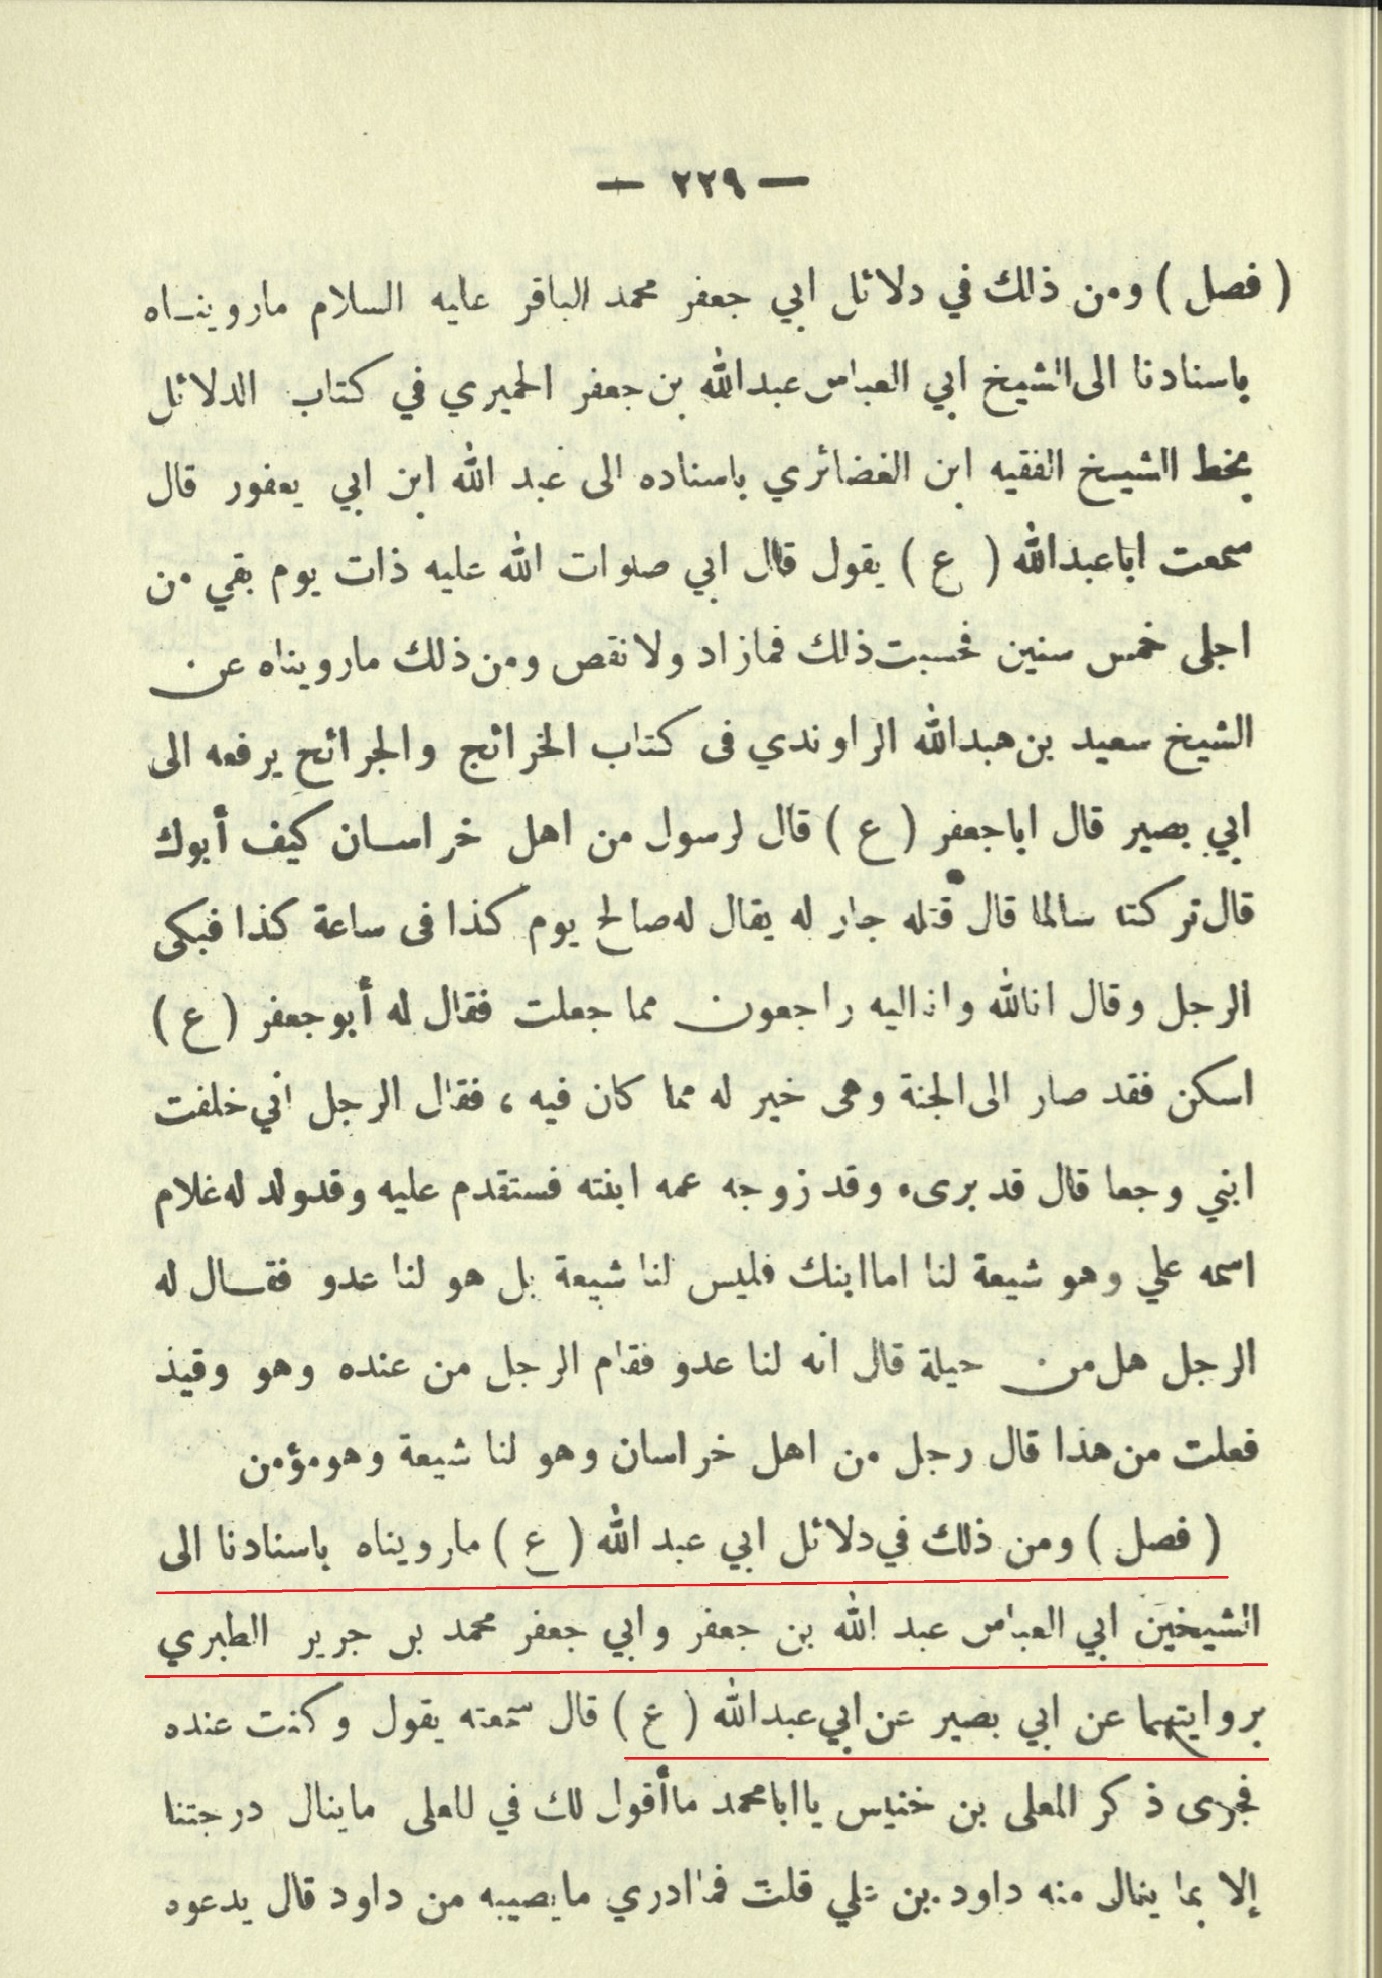 — ٢٢٩ —
( فصل ) ومن ذلك في دلائل ابي جعفر محمد الباقر عليه السلام مارويناه
باسنادنا الى الشيخ ابي العباس عبدالله بن جعفر الحميري في كتاب الدلائل
بخط الشيخ الفقيه ابن الغضائري باسناده الى عبد الله ابن ابي يعفور قال
سمعت اباعبدالله ( ع ) يقول قال ابي صلوات الله عليه ذات يوم بقي من
اجلى خمس سنين فحسبت ذلك فمازاد ولا نقص ومن ذلك مارويناه عن
الشيخ سعيد بن هبدالله الراوندي فى كتاب الخرائج والجرائح يرفعه الى
ابي بصير قال اباجعفر ( ع ) قال لرسول من اهل خراسان كيف أبوك
قال تركتا سالما قال قتله جار له يقال له صالح يوم كذا فى ساعة كذا فبكى
الرجل وقال انالله وانا اليه راجعون مما جعلت فقال له أبو جعفر ( ع )
اسكن فقد صار الى الجنة وهى خير له مما كان فيه ، فقال الرجل اني خلفت
ابني وجعا قال قد برىء وقد زوجه عمه ابنته فستقدم عليه وقدولد له غلام
اسمه علي وهو شيعة لنا اما ابنك فليس لنا شيعة بل هو لنا عدو فقال له
الرجل هل من حيلة قال انه لنا عدو فقام الرجل من عنده وهو وقيذ
فعلت من هذا قال رجل من اهل خراسان وهو لنا شيعة وهو مؤمن
( فصل ) ومن ذلك في دلائل ابي عبد الله ( ع ) مارويناه باسنادنا الى
الشيخين ابي العباس عبد الله بن جعفر وابي جعفر محمد بن جرير الطبري
بروايتهما عن ابي بصير عن ابي عبدالله ( ع ) قال سمعته يقول وكنت عنده
فجرى ذكر المعلى بن خنيس يا ابا محمد ما أقول لك في للعلى ماينال درجتنا
إلا بما ينال منه داود بن علي قلت فما ادري ما يصيبه من داود قال يدعوه